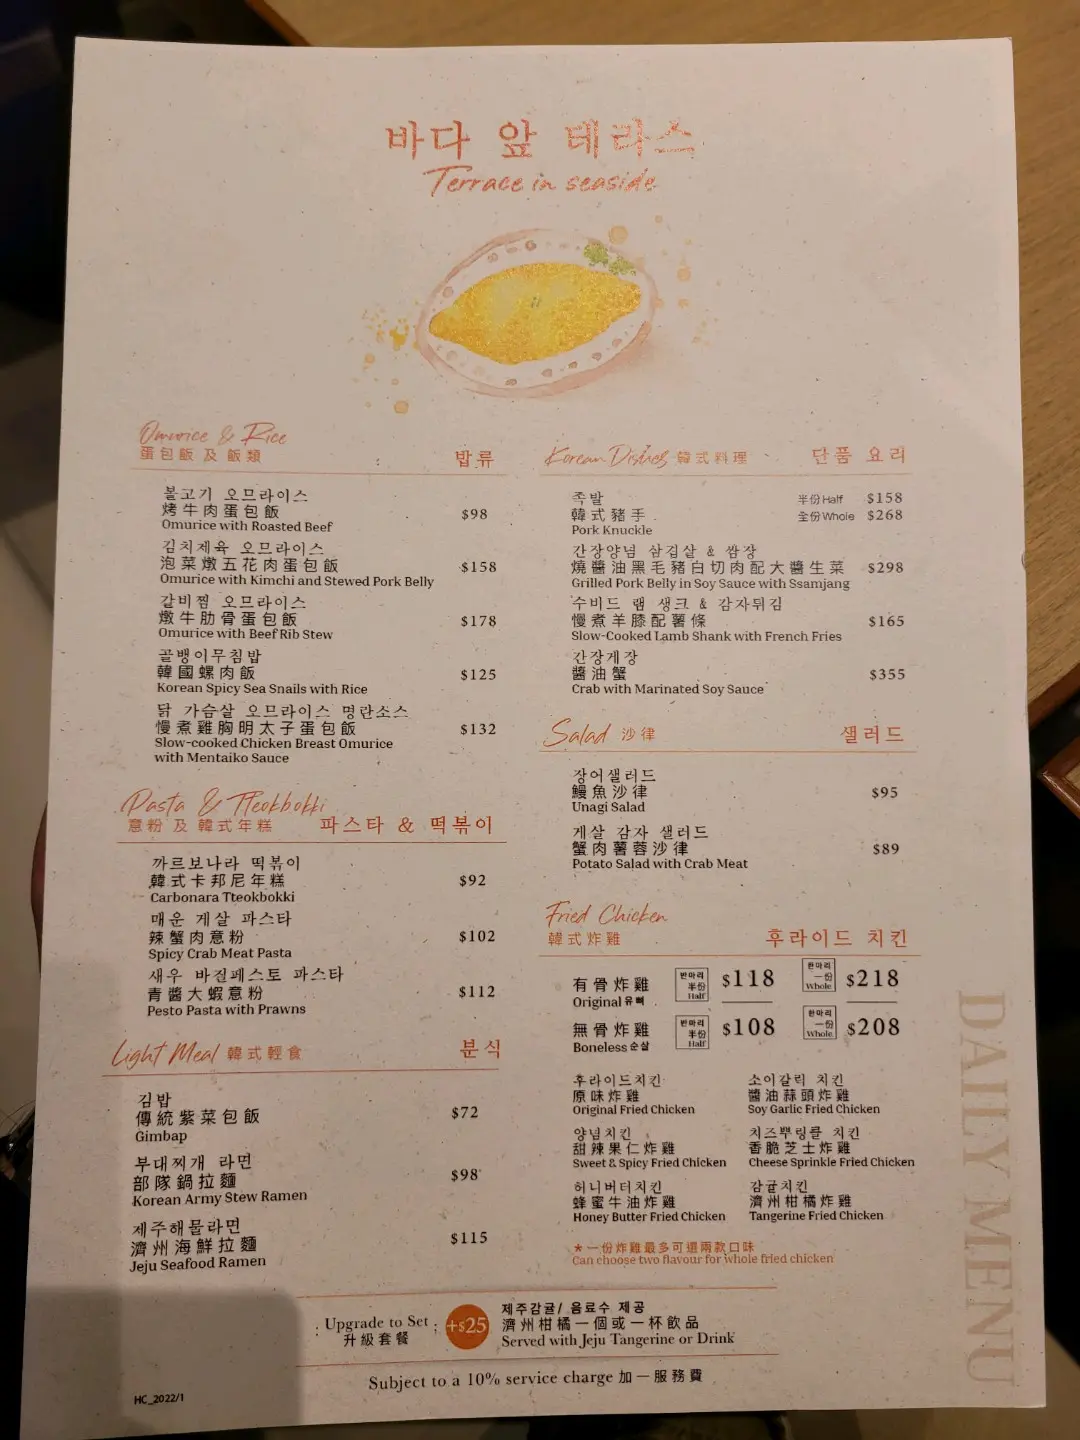 바다 앞 테라스
Terrace in seaside
Omurice & Rice
蛋包飯 及 飯類 밥류
불고기 오므라이스
烤牛肉蛋包飯 $98
Omurice with Roasted Beef
김치제육 오므라이스
泡菜燉五花肉蛋包飯 $158
Omurice with Kimchi and Stewed Pork Belly
갈비찜 오므라이스
燉牛肋骨蛋包飯 $178
Omurice with Beef Rib Stew
골뱅이무침밥
韓國螺肉飯 $125
Korean Spicy Sea Snails with Rice
닭 가슴살 오므라이스 명란소스
慢煮雞胸明太子蛋包飯 $132
Slow-cooked Chicken Breast Omurice
with Mentaiko Sauce
Pasta & Tteokbokki
意粉 及 韓式年糕 파스타 & 떡볶이
까르보나라 떡볶이
韓式卡邦尼年糕 $92
Carbonara Tteokbokki
매운 게살 파스타
辣蟹肉意粉 $102
Spicy Crab Meat Pasta
새우 바질페스토 파스타
青醬大蝦意粉 $112
Pesto Pasta with Prawns
Light Meal 韓式輕食 분식
김밥
傳統紫菜包飯 $72
Gimbap
부대찌개 라면
部隊鍋拉麵 $98
Korean Army Stew Ramen
제주해물라면
濟州海鮮拉麵 $115
Jeju Seafood Ramen
Korean Dishes 韓式料理 단품 요리
족발 半份 Half $158
韓式豬手 全份 Whole $268
Pork Knuckle
간장양념 삼겹살 & 쌈장
燒醬油黑毛豬白切肉配大醬生菜 $298
Grilled Pork Belly in Soy Sauce with Ssamjang
수비드 램 생크 & 감자튀김
慢煮羊膝配薯條 $165
Slow-Cooked Lamb Shank with French Fries
간장게장
醬油蟹 $355
Crab with Marinated Soy Sauce
Salad 沙律 샐러드
장어샐러드
鰻魚沙律 $95
Unagi Salad
게살 감자 샐러드
蟹肉薯蓉沙律 $89
Potato Salad with Crab Meat
Fried Chicken
韓式炸雞 후라이드 치킨
有骨炸雞 반마리 半份 Half $118 한마리 一份 Whole $218
Original 유뼈
無骨炸雞 반마리 半份 Half $108 한마리 一份 Whole $208
Boneless 순살
후라이드치킨
原味炸雞
Original Fried Chicken
소이갈릭 치킨
醬油蒜頭炸雞
Soy Garlic Fried Chicken
양념치킨
甜辣果仁炸雞
Sweet & Spicy Fried Chicken
치즈뿌링클 치킨
香脆芝士炸雞
Cheese Sprinkle Fried Chicken
허니버터치킨
蜂蜜牛油炸雞
Honey Butter Fried Chicken
감귤치킨
濟州柑橘炸雞
Tangerine Fried Chicken
* 一份炸雞最多可選兩款口味
Can choose two flavour for whole fried chicken
DAILY MENU
Upgrade to Set
升級套餐
+$25
제주감귤/ 음료수 제공
濟州柑橘一個或一杯飲品
Served with Jeju Tangerine or Drink
Subject to a 10% service charge 加一服務費
HC_2022/1